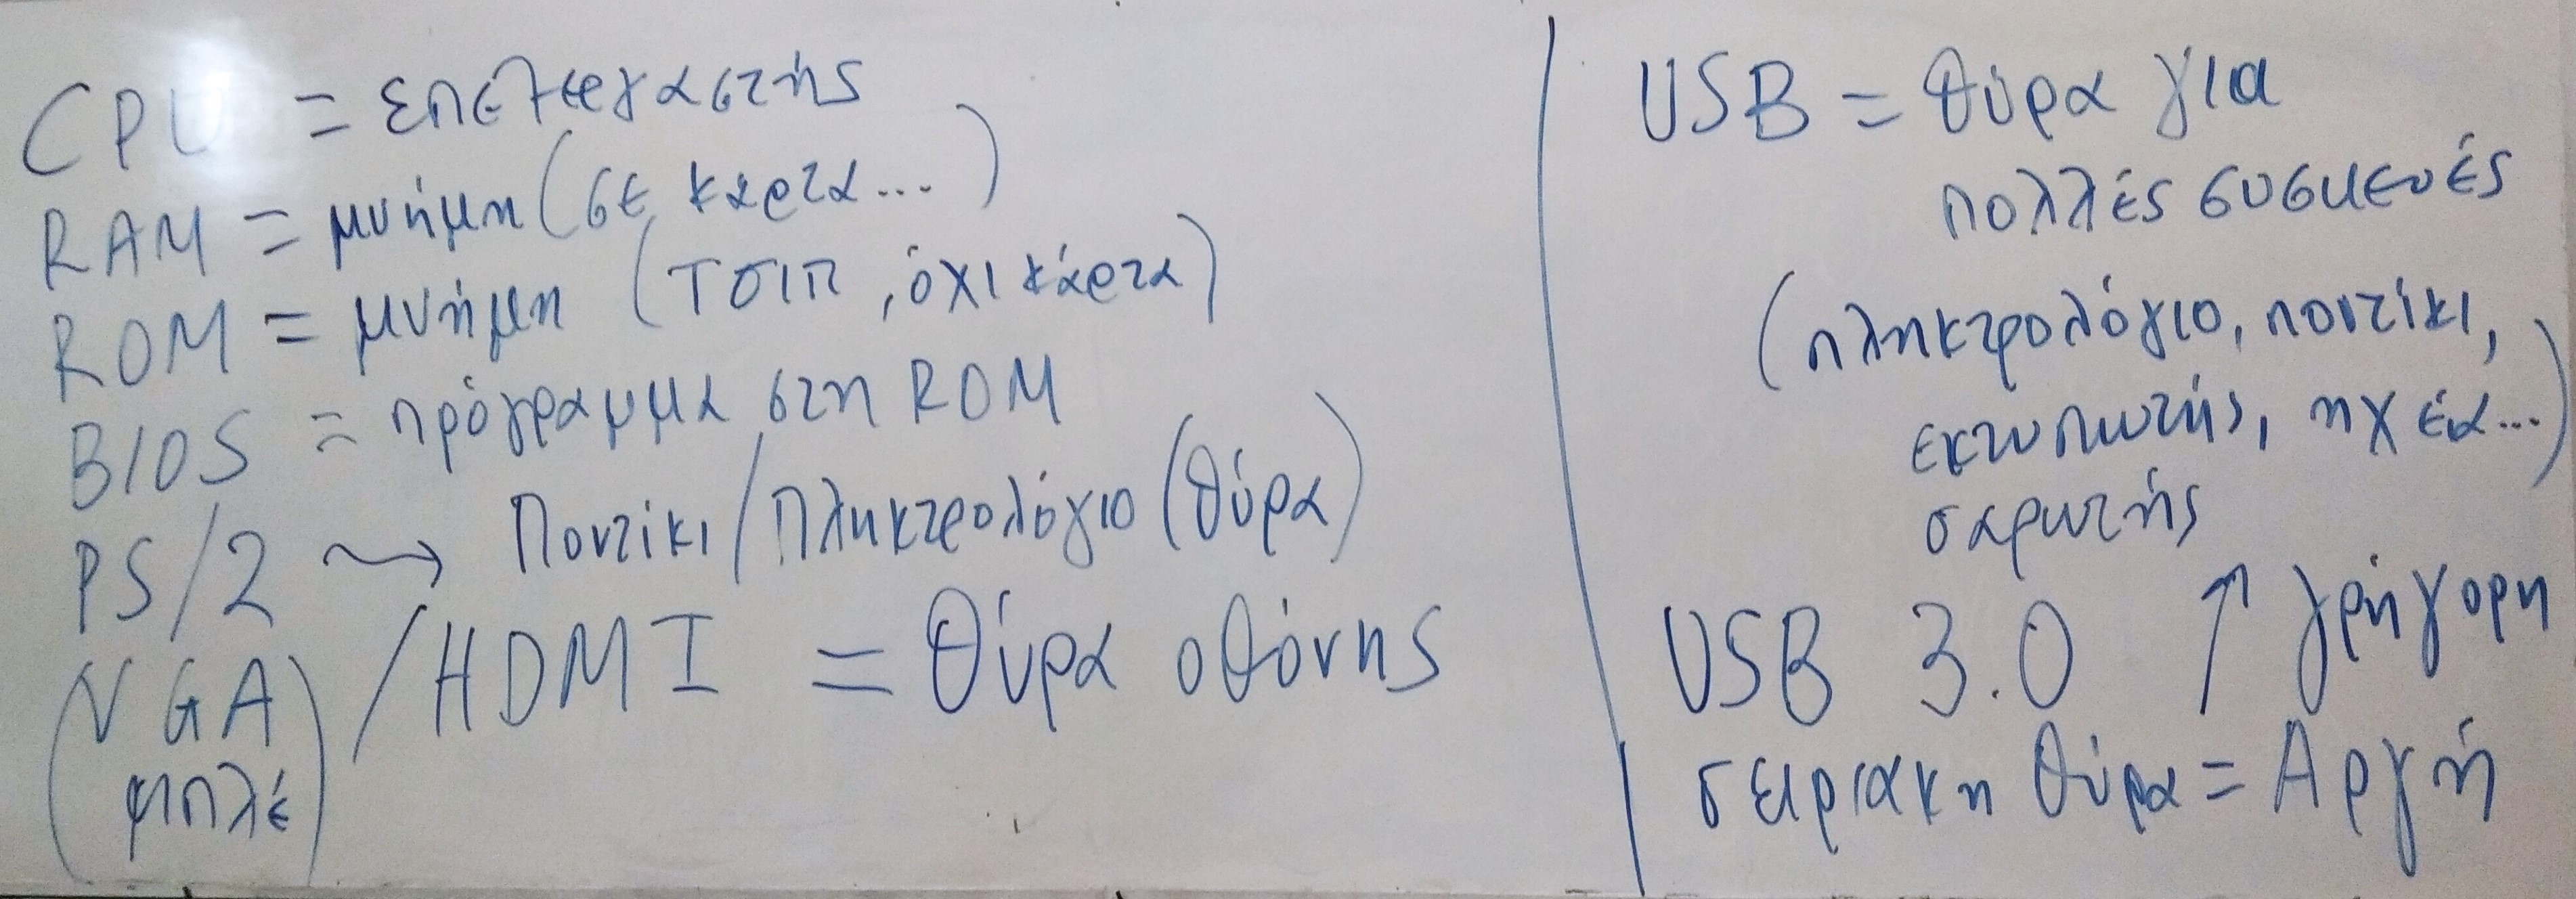 CPU = επεξεργαστής
RAM = μνήμη (σε κάρτα...)
ROM = μνήμη (τσιπ, όχι κάρτα)
BIOS = πρόγραμμα στη ROM
PS/2 → Ποντίκι/Πληκτρολόγιο (θύρα)
VGA / HDMI = θύρα οθόνης
(μπλέ)
USB = θύρα για
πολλές συσκευές
(πληκτρολόγιο, ποντίκι,
εκτυπωτής, ηχεία...)
σαρωτής
USB 3.0 ↑ γρήγορη
σειριακη θύρα = Αργή